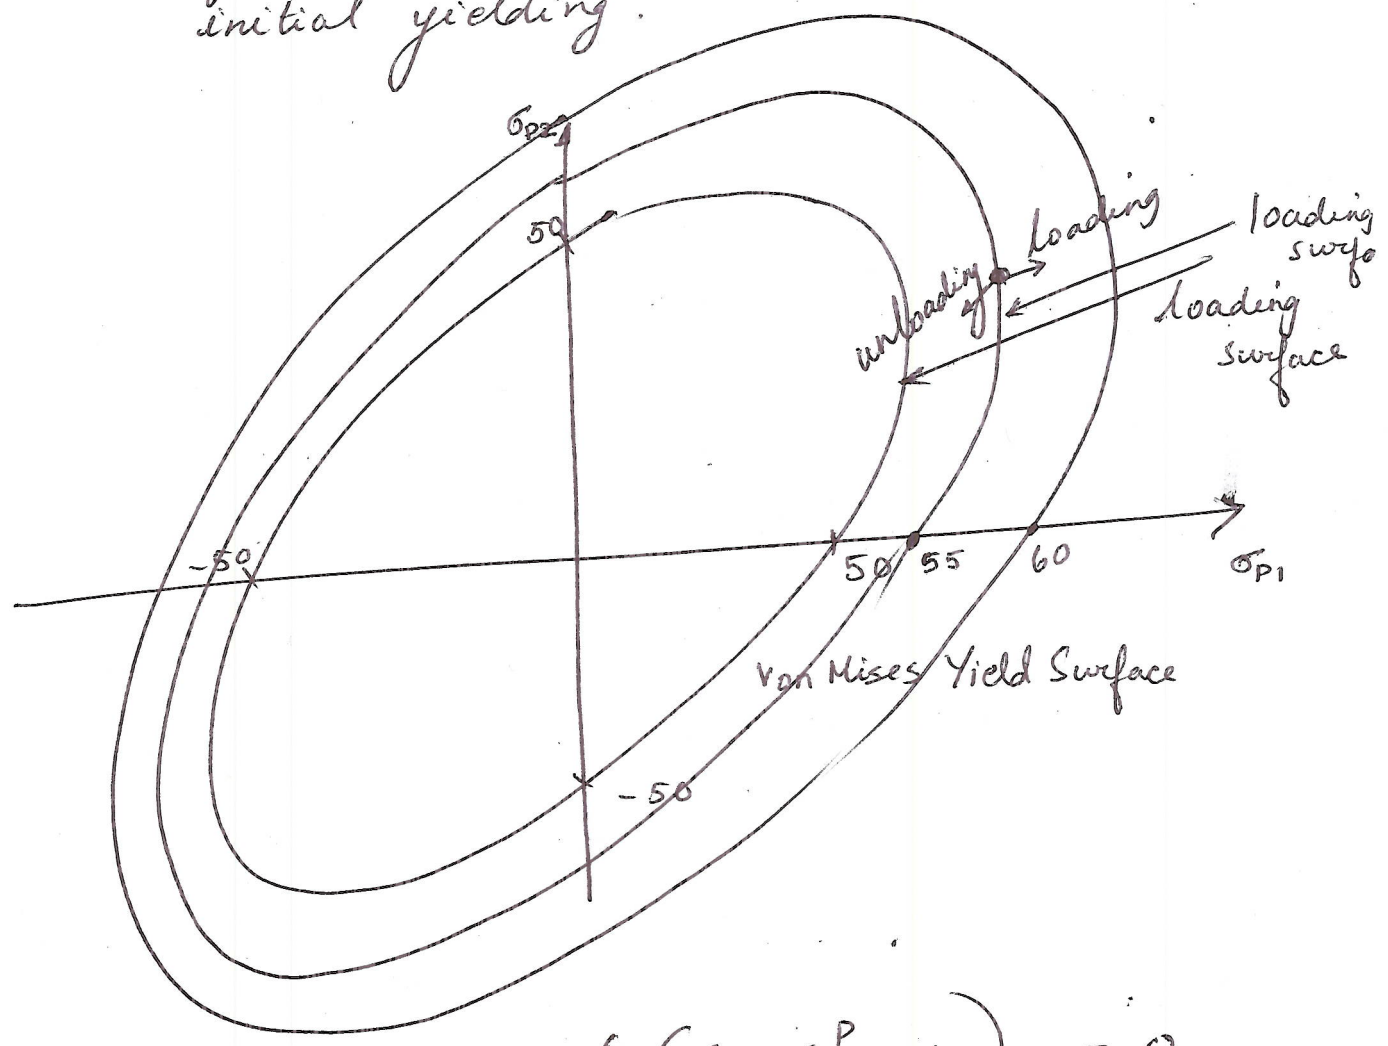 initial yielding.
σP2
50
loading
loading
surfa
unloading
loading
surface
-50
50
55
60
σP1
Von Mises Yield Surface
-50